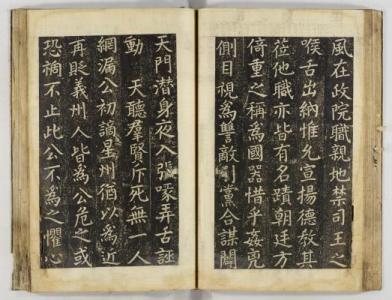 風在政院職親地禁司王之
喉舌出納惟允宣揚德敎其
莅他職亦皆有名蹟朝廷方
倚重之稱爲國器惜乎姦兇
側目視爲讐敵引黨合謀闖
天門潛身夜入張喙弄舌誣
動 天聽羣賢斥死無一人
網漏公初謫星州猶以爲近
再貶義州人皆爲公危之或
恐禍不止此公不爲之懼心